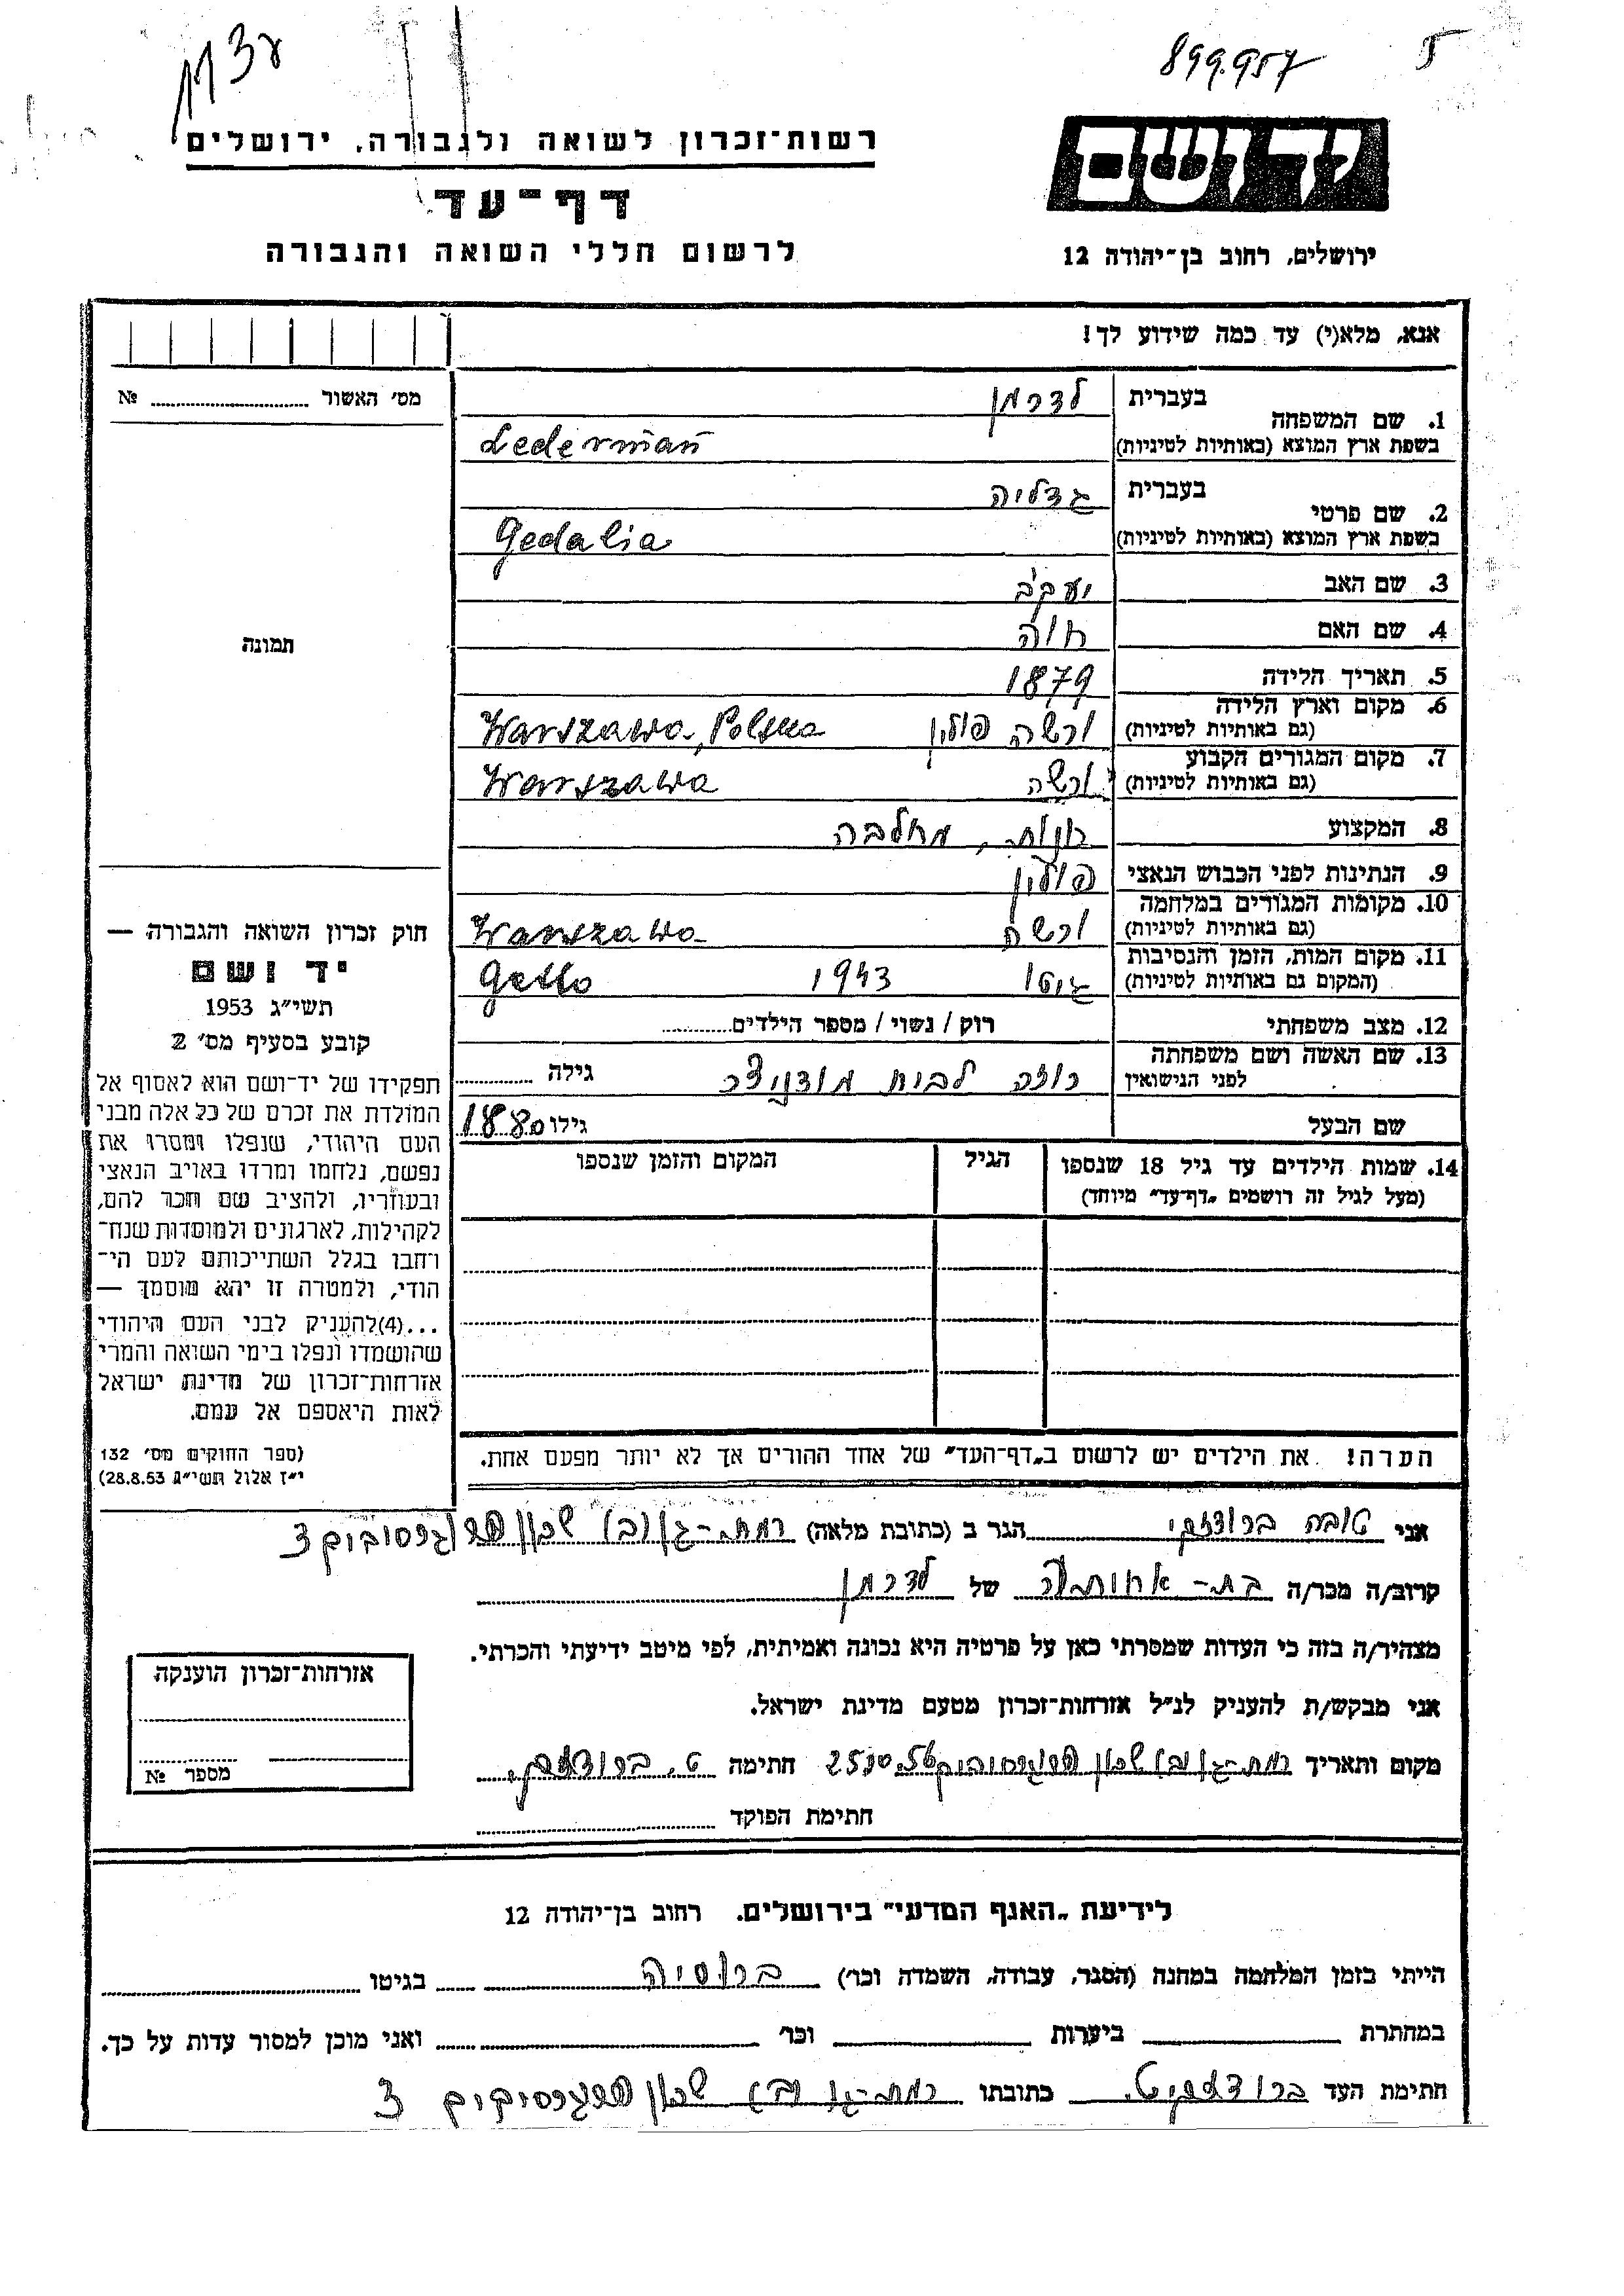 899.957
רשות־זכרון לשואה ולגבורה, ירושלים
יד ושם
דף־עד
לרשום חללי השואה והגבורה
ירושלים, רחוב בן־יהודה 12
אנא, מלא(י) עד כמה שידוע לך!
מס׳ האשור № 
1. שם המשפחה
בעברית לדרמן
בשפת ארץ המוצא (באותיות לטיניות) Lederman
2. שם פרטי
בעברית גדליה
בשפת ארץ המוצא (באותיות לטיניות) Gedalia
3. שם האב יעקב
4. שם האם חוה
תמונה
5. תאריך הלידה 1879
6. מקום וארץ הלידה (גם באותיות לטיניות) ורשה פולין Warszawa, Polska
7. מקום המגורים הקבוע (גם באותיות לטיניות) ורשה Warszawa
8. המקצוע חנות, מחלבה
9. הנתינות לפני הכבוש הנאצי פולין
10. מקומות המגורים במלחמה (גם באותיות לטיניות) ורשה Warszawa
11. מקום המות, הזמן והנסיבות (המקום גם באותיות לטיניות) גיטו 1943 Getto
12. מצב משפחתי רוק / נשוי / מספר הילדים
13. שם האשה ושם משפחתה לפני הנישואין רוזה לבית גילה
שם הבעל גילו 1880
14. שמות הילדים עד גיל 18 שנספו הגיל המקום והזמן שנספו
(מעל לגיל זה רושמים „דף־עד״ מיוחד)
חוק זכרון השואה והגבורה —
יד ושם
תשי״ג 1953
קובע בסעיף מס׳ 2
תפקידו של יד־ושם הוא לאסוף אל
המולדת את זכרם של כל אלה מבני
העם היהודי, שנפלו ומסרו את
נפשם, נלחמו ומרדו באויב הנאצי
ובעוזריו, ולהציב שם וזכר להם,
לקהילות, לארגונים ולמוסדות שנח־
רבו בגלל השתייכותם לעם הי־
הודי, ולמטרה זו יהא מוסמך —
...(4)להעניק לבני העם היהודי
שהושמדו ונפלו בימי השואה והמרי
אזרחות־זכרון של מדינת ישראל
לאות היאספם אל עמם.
(ספר החוקים מס׳ 132
י״ז אלול תשי״ג 28.8.53)
הערה! את הילדים יש לרשום ב„דף־העד״ של אחד ההורים אך לא יותר מפעם אחת.
אני טובה הגר ב (כתובת מלאה) רמת-גן (ב) שכון הפרוגרסיבים 3
קרוב/ה מכר/ה בת- של לדרמן
מצהיר/ה בזה כי העדות שמסרתי כאן על פרטיה היא נכונה ואמיתית, לפי מיטב ידיעתי והכרתי.
אני מבקש/ת להעניק לנ״ל אזרחות־זכרון מטעם מדינת ישראל.
מקום ותאריך רמת-גן (ב) שכון הפרוגרסיבים חתימה
חתימת הפוקד
אזרחות־זכרון הוענקה
מספר №
לידיעת „האגף המדעי״ בירושלים. רחוב בן־יהודה 12
הייתי בזמן המלחמה במחנה (הסגר, עבודה, השמדה וכו׳) ברוסיה בגיטו
במחתרת ביערות וכו׳ ואני מוכן למסור עדות על כך.
חתימת העד כתובתו רמת-גן (ב) שכון הפרוגרסיבים 3